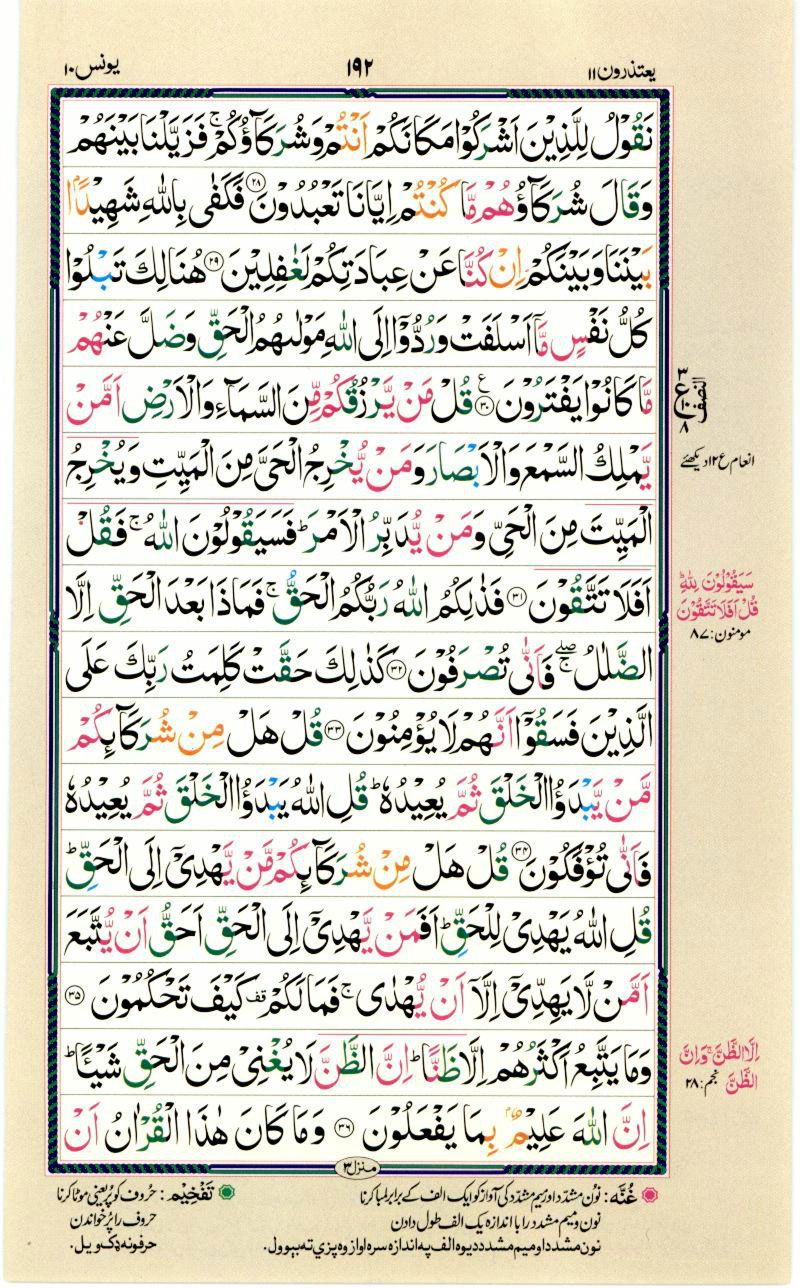 یعتذرون ۱۱
۱۹۲
یونس ۱۰
نَقُوۡلُ لِلَّذِیۡنَ اَشۡرَکُوۡا مَکَانَکُمۡ اَنۡتُمۡ وَشُرَکَآؤُکُمۡ ۚ فَزَیَّلۡنَا بَیۡنَهُمۡ
وَقَالَ شُرَکَآؤُهُمۡ مَّا کُنۡتُمۡ اِیَّانَا تَعۡبُدُوۡنَ ﴿۲۸﴾ فَکَفٰی بِاللّٰهِ شَهِیۡدًۢا
بَیۡنَنَا وَبَیۡنَکُمۡ اِنۡ کُنَّا عَنۡ عِبَادَتِکُمۡ لَغٰفِلِیۡنَ ﴿۲۹﴾ هُنَالِکَ تَبۡلُوۡا
کُلُّ نَفۡسٍ مَّاۤ اَسۡلَفَتۡ وَرُدُّوۡۤا اِلَی اللّٰهِ مَوۡلٰىهُمُ الۡحَقِّ وَضَلَّ عَنۡهُمۡ
مَّا کَانُوۡا یَفۡتَرُوۡنَ ﴿۳۰﴾ ع قُلۡ مَنۡ یَّرۡزُقُکُمۡ مِّنَ السَّمَآءِ وَالۡاَرۡضِ اَمَّنۡ
یَّمۡلِکُ السَّمۡعَ وَالۡاَبۡصَارَ وَمَنۡ یُّخۡرِجُ الۡحَیَّ مِنَ الۡمَیِّتِ وَیُخۡرِجُ
الۡمَیِّتَ مِنَ الۡحَیِّ وَمَنۡ یُّدَبِّرُ الۡاَمۡرَ ؕ فَسَیَقُوۡلُوۡنَ اللّٰهُ ۚ فَقُلۡ
اَفَلَا تَتَّقُوۡنَ ﴿۳۱﴾ فَذٰلِکُمُ اللّٰهُ رَبُّکُمُ الۡحَقُّ ۚ فَمَاذَا بَعۡدَ الۡحَقِّ اِلَّا
الضَّلٰلُ ۖۚ فَاَنّٰی تُصۡرَفُوۡنَ ﴿۳۲﴾ کَذٰلِکَ حَقَّتۡ کَلِمَتُ رَبِّکَ عَلَی
الَّذِیۡنَ فَسَقُوۡۤا اَنَّهُمۡ لَا یُؤۡمِنُوۡنَ ﴿۳۳﴾ قُلۡ هَلۡ مِنۡ شُرَکَآئِکُمۡ
مَّنۡ یَّبۡدَؤُا الۡخَلۡقَ ثُمَّ یُعِیۡدُهٗ ؕ قُلِ اللّٰهُ یَبۡدَؤُا الۡخَلۡقَ ثُمَّ یُعِیۡدُهٗ
فَاَنّٰی تُؤۡفَکُوۡنَ ﴿۳۴﴾ قُلۡ هَلۡ مِنۡ شُرَکَآئِکُمۡ مَّنۡ یَّهۡدِیۡۤ اِلَی الۡحَقِّ ؕ
قُلِ اللّٰهُ یَهۡدِیۡ لِلۡحَقِّ ؕ اَفَمَنۡ یَّهۡدِیۡۤ اِلَی الۡحَقِّ اَحَقُّ اَنۡ یُّتَّبَعَ
اَمَّنۡ لَّا یَهِدِّیۡۤ اِلَّاۤ اَنۡ یُّهۡدٰی ۚ فَمَا لَکُمۡ قف کَیۡفَ تَحۡکُمُوۡنَ ﴿۳۵﴾
وَمَا یَتَّبِعُ اَکۡثَرُهُمۡ اِلَّا ظَنًّا ؕ اِنَّ الظَّنَّ لَا یُغۡنِیۡ مِنَ الۡحَقِّ شَیۡئًا ؕ
اِنَّ اللّٰهَ عَلِیۡمٌۢ بِمَا یَفۡعَلُوۡنَ ﴿۳۶﴾ وَمَا کَانَ هٰذَا الۡقُرۡاٰنُ اَنۡ
منزل ۳
۳
ع
۱۰
۸
النصف
انعام ع ۱۲ دیکھئے
سَیَقُوۡلُوۡنَ لِلّٰهِ ؕ
قُلۡ اَفَلَا تَتَّقُوۡنَ
مومنون: ۸۷
اِلَّا الظَّنَّ ۚ وَاِنَّ
الظَّنَّ نجم: ۲۸
غُنَّه: نون مشدد اور میم مشدد کی آواز کو ایک الف کے برابر لمبا کرنا
نون و میم مشدد را با اندازہ یک الف طول دادن
نون مشدد او میم مشدد دیوه الف په اندازه سره اواز وه پزي ته بیوول.
تَفۡخِیۡم: حروف کو پُر یعنی موٹا کرنا
حروف را پُر خواندن
حرفونه ډک ویل.